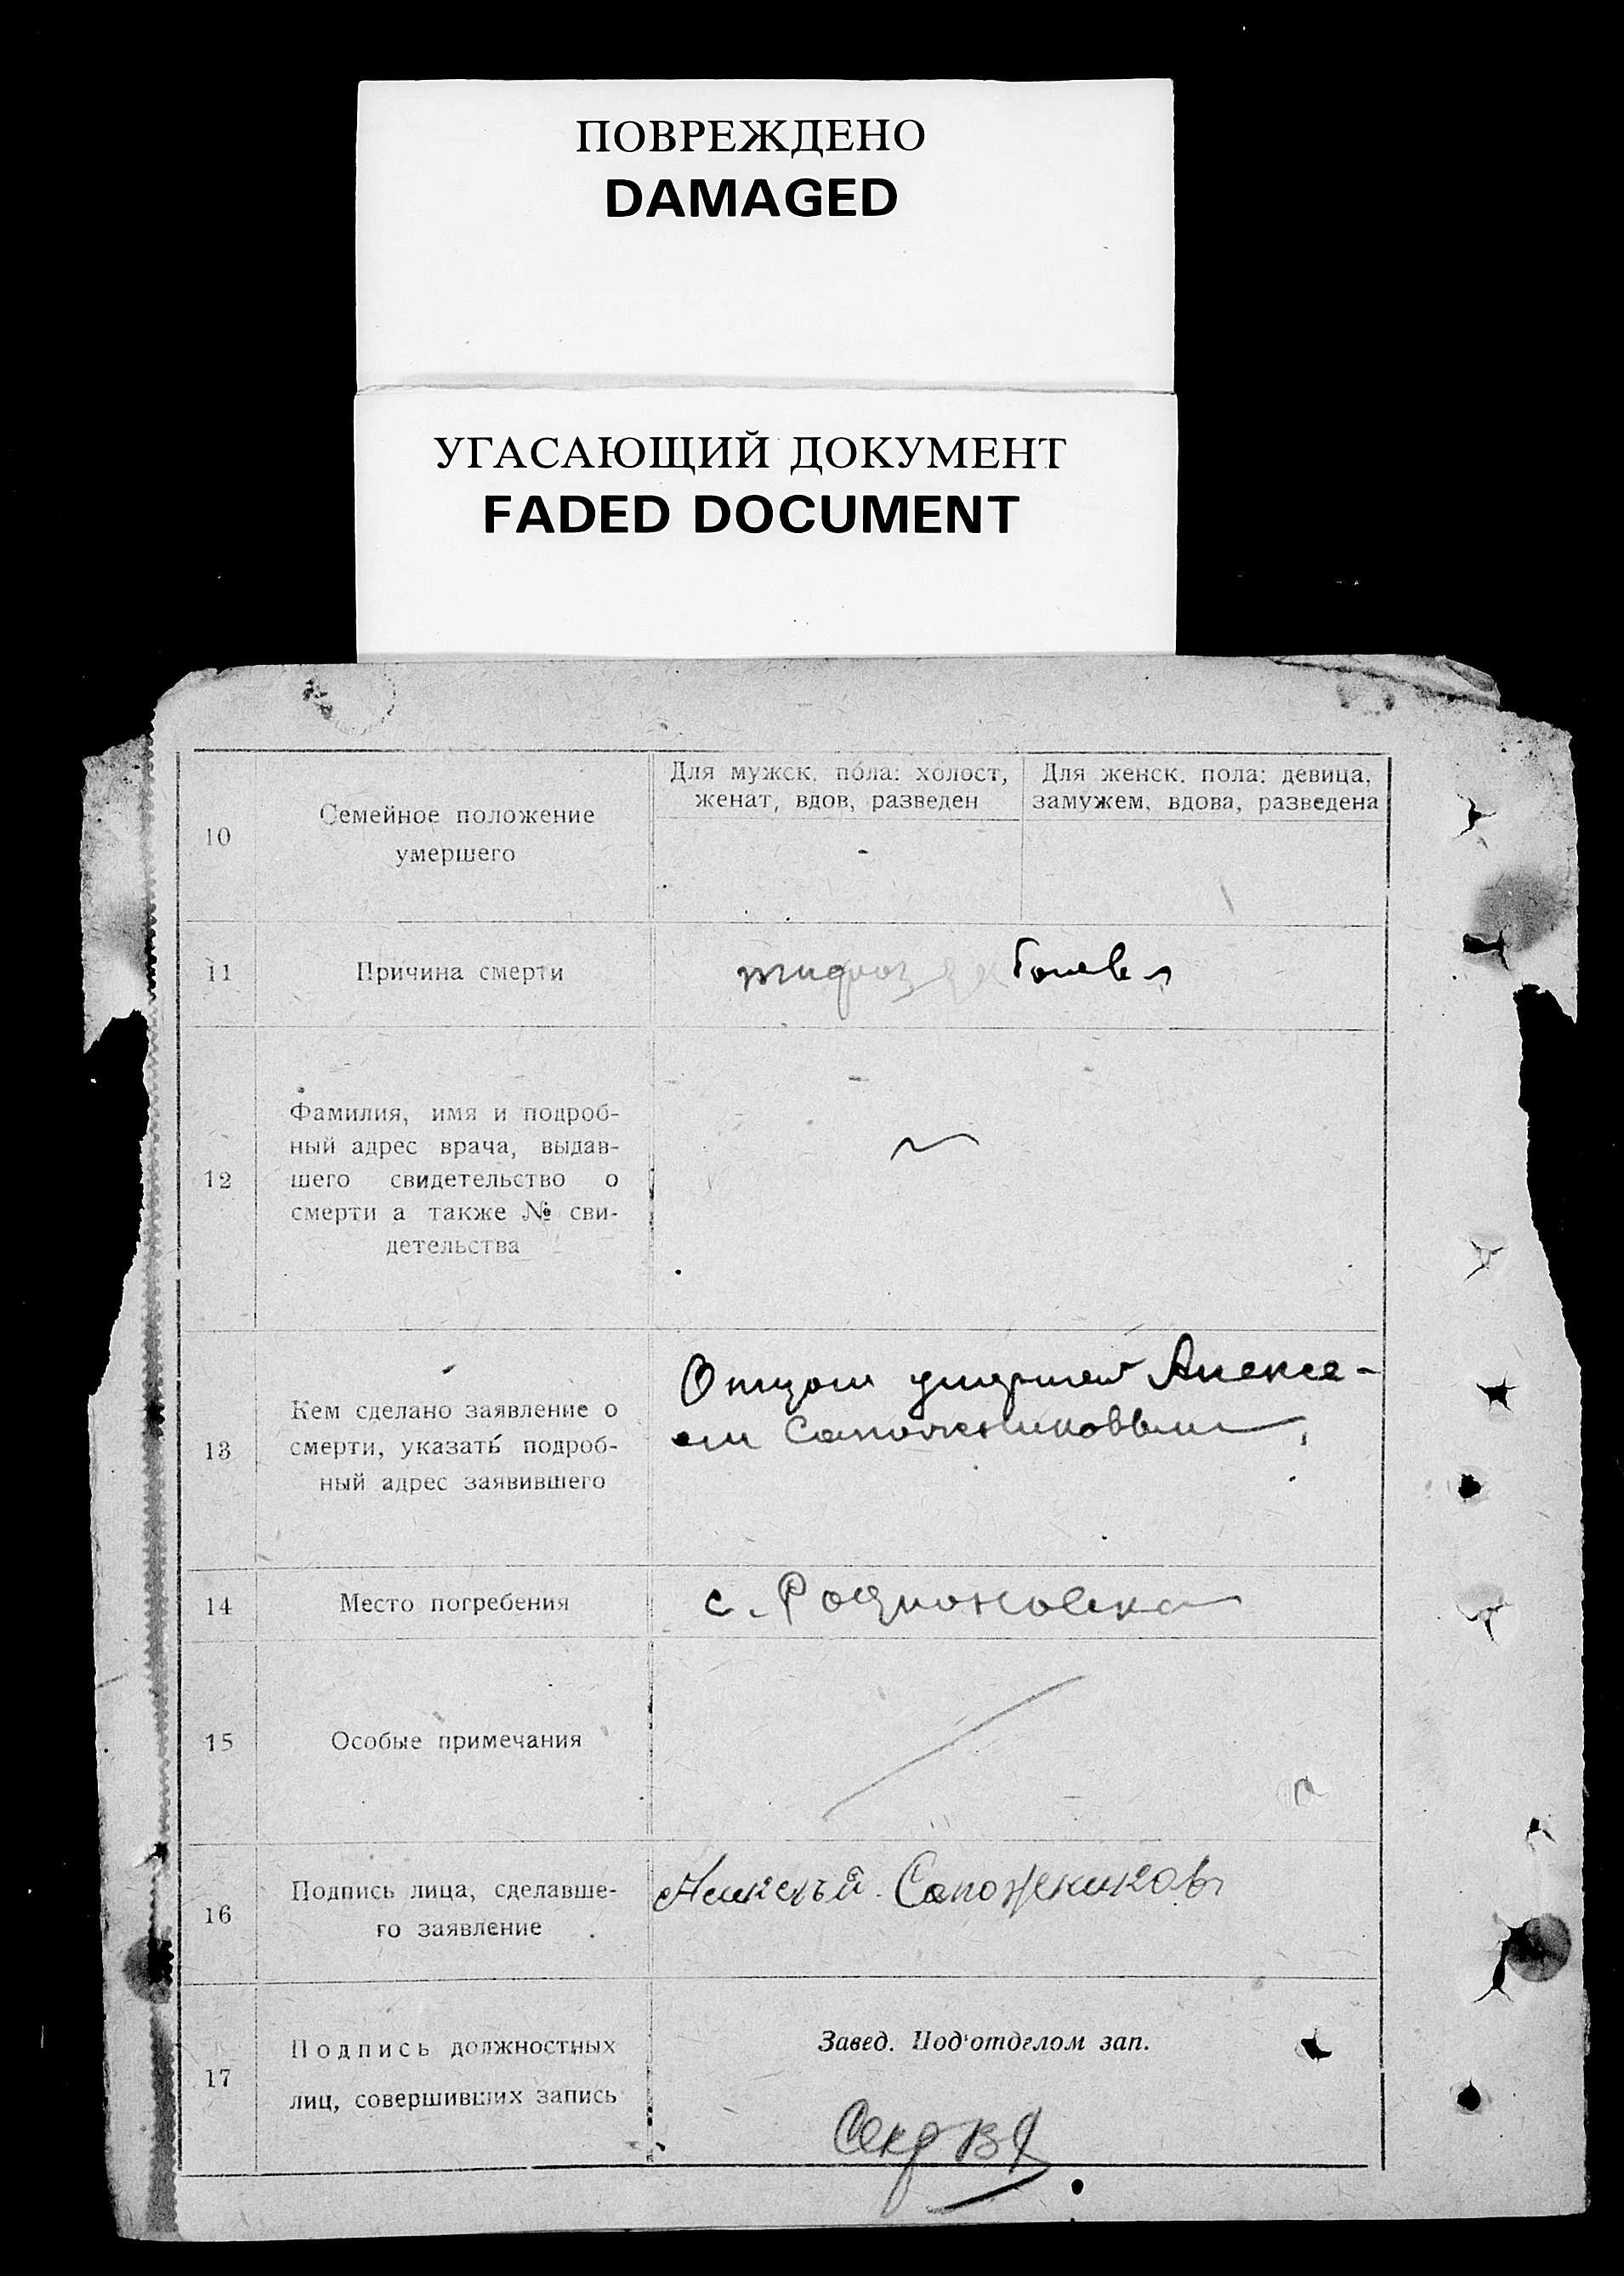 ПОВРЕЖДЕНО
DAMAGED
УГАСАЮЩИЙ ДОКУМЕНТ
FADED DOCUMENT
10
Семейное положение
умершего
Для мужск. пола: холост,
женат, вдов, разведен
Для женск. пола: девица,
замужем, вдова, разведена
11
Причина смерти
12
Фамилия, имя и подроб-
ный адрес врача, выдав-
шего свидетельство о
смерти а также № сви-
детельства
13
Кем сделано заявление о
смерти, указать подроб-
ный адрес заявившего
Отцом умершей Алексе-
ем Сапожниковым
14
Место погребения
с. Родионовка
15
Особые примечания
16
Подпись лица, сделавше-
го заявление
Сапожников
17
Подпись должностных
лиц, совершивших запись
Завед. Под'отделом зап.
Секр